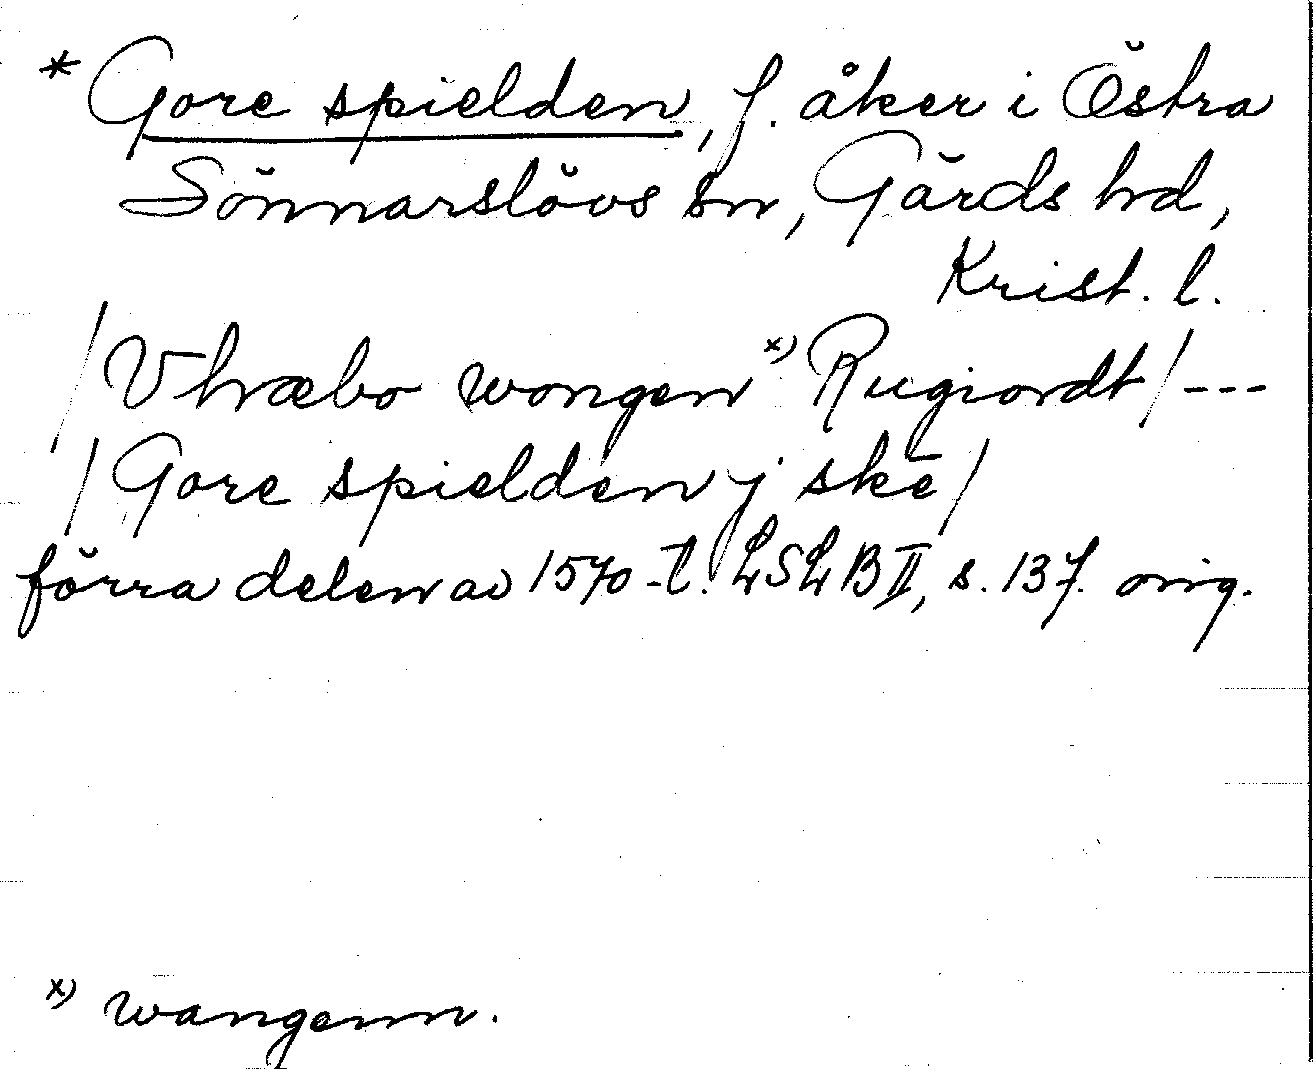 * Gore spielden, f. åker i Östra
Sönnarslövs sn, Gärds hd,
Krist. l.
/Vhræbo wongen x) Rugiordt/---
/Gore spielden j skē/
förra delen av 1570-t. LSLB II, s. 137. orig.
x) wangenn.